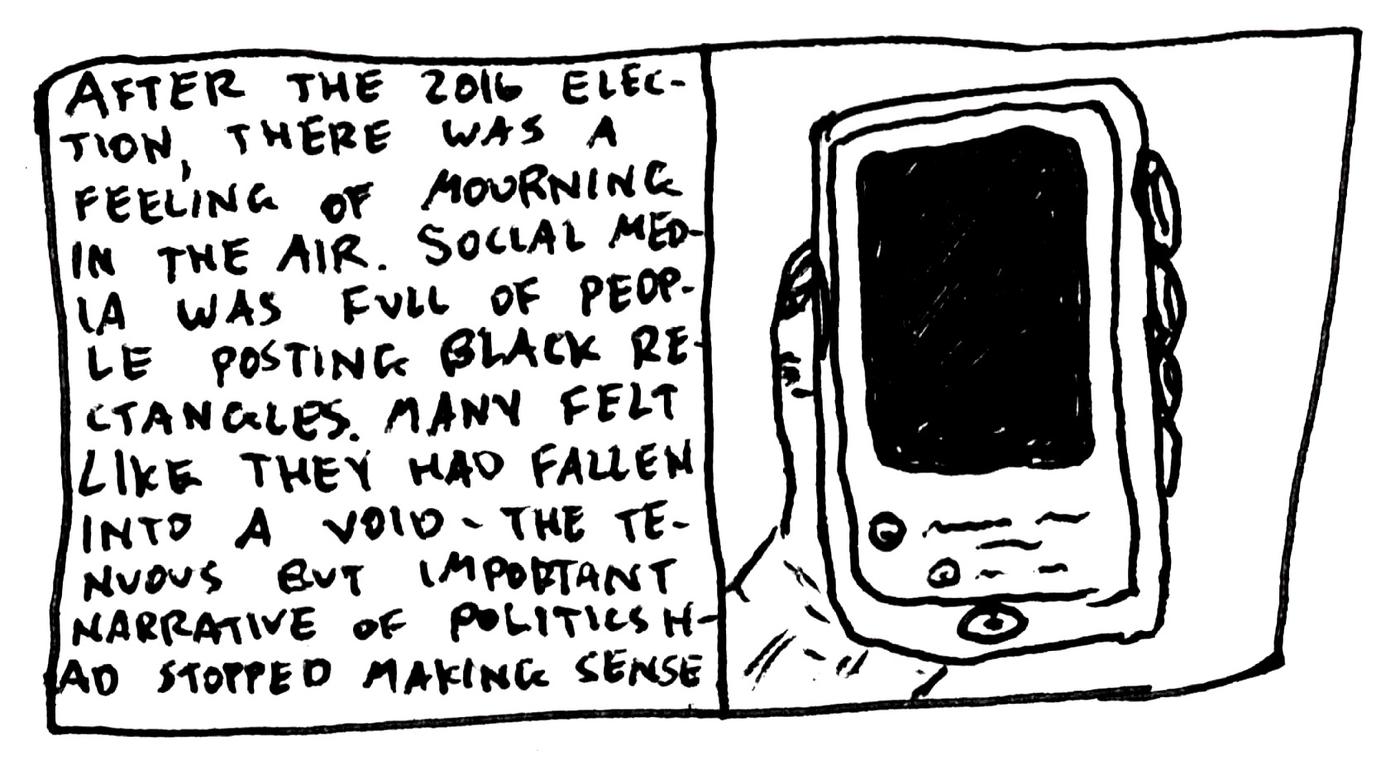 AFTER THE 2016 ELEC-
TION, THERE WAS A
FEELING OF MOURNING
IN THE AIR. SOCIAL MED-
IA WAS FULL OF PEOP-
LE POSTING BLACK RE-
CTANGLES. MANY FELT
LIKE THEY HAD FALLEN
INTO A VOID - THE TE-
NUOUS BUT IMPORTANT
NARRATIVE OF POLITICS H-
AD STOPPED MAKING SENSE